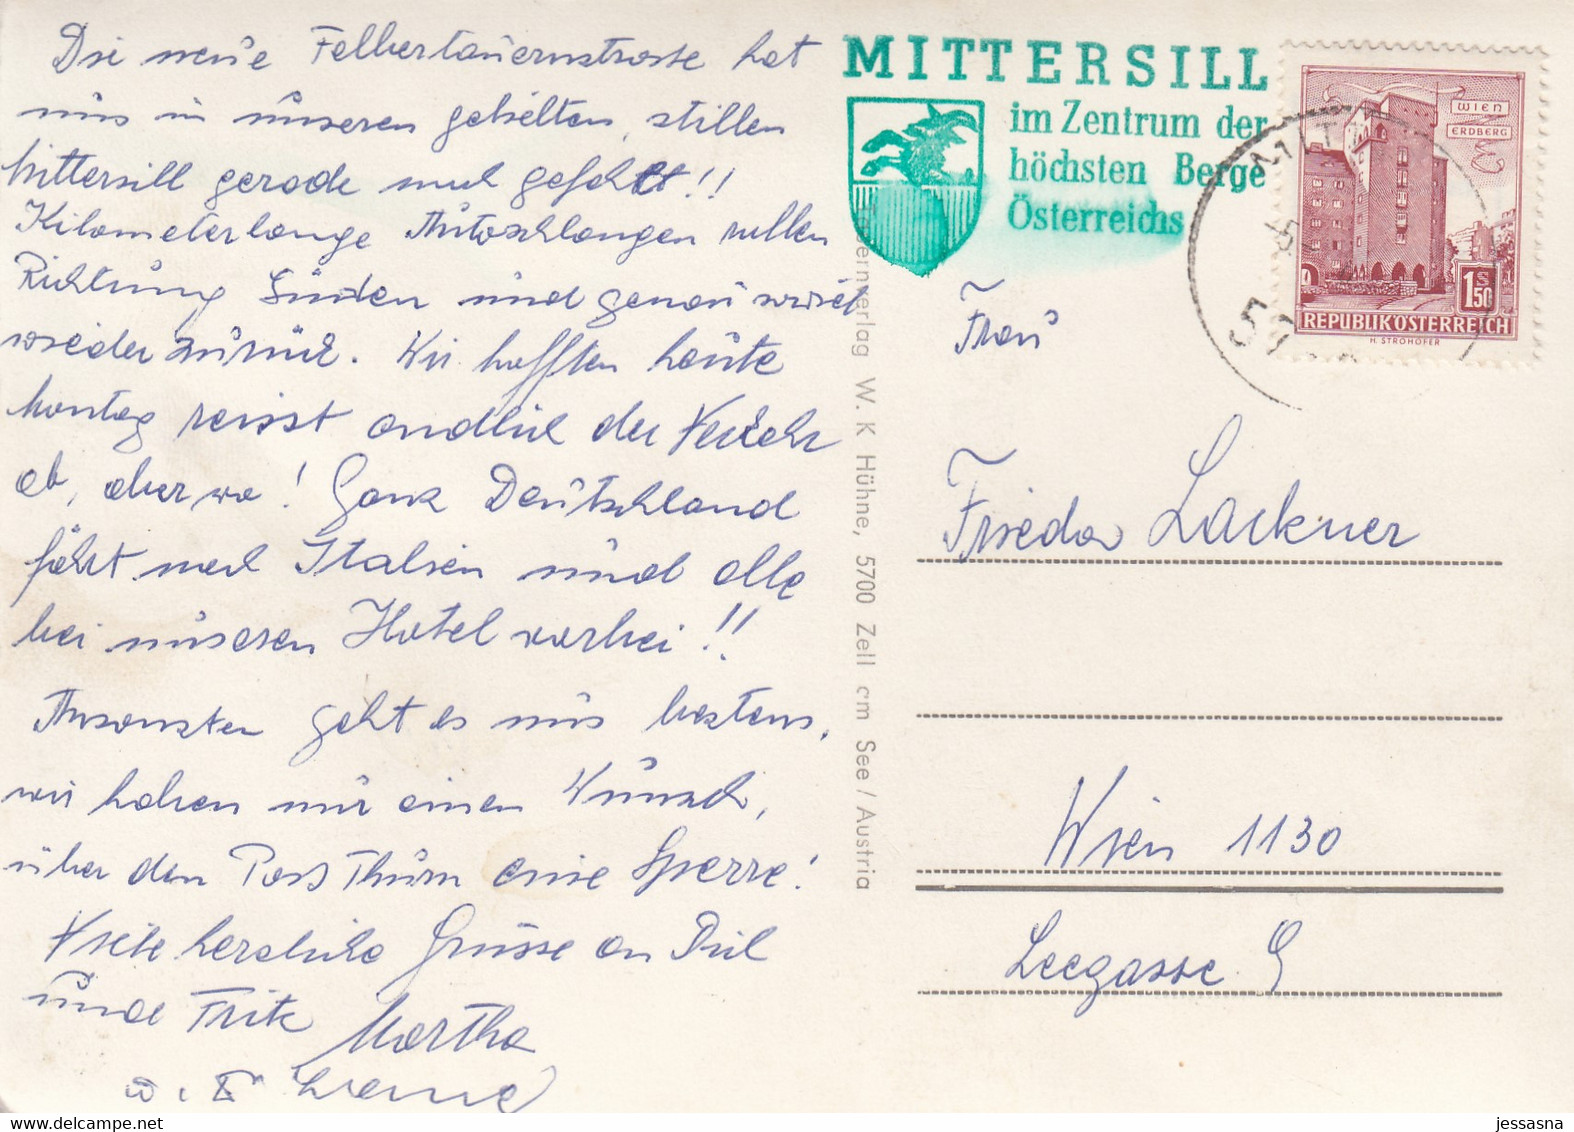 Die neue Felbertauernstrasse hat
uns in unseren geliebten, stillen
Mittersill gerade noch gefehlt!!
Kilometerlange Autoschlangen rollen
Richtung Süden und genau soviel
wieder zurück. Wir hofften heute
Montag reisst endlich der Verkehr
ab, aber wo! Ganz Deutschland
fährt nach Italien und alle
bei unseren Hotel vorbei!!
Ansonsten geht es uns bestens,
wir haben nur einen Wunsch,
über den Pass Thurn eine Sperre!
Viele herzliche Grüsse an Dich
und Fritz Martha
u.
MITTERSILL
im Zentrum der
höchsten Berge
Österreichs
WIEN
ERDBERG
1 S 50
REPUBLIK ÖSTERREICH
H. STROHOFER
Frau
Frieda Lackner
Wien 1130
Leegasse 9
verlag W. K Hühne, 5700 Zell am See / Austria
www.delcampe.net
jessasna